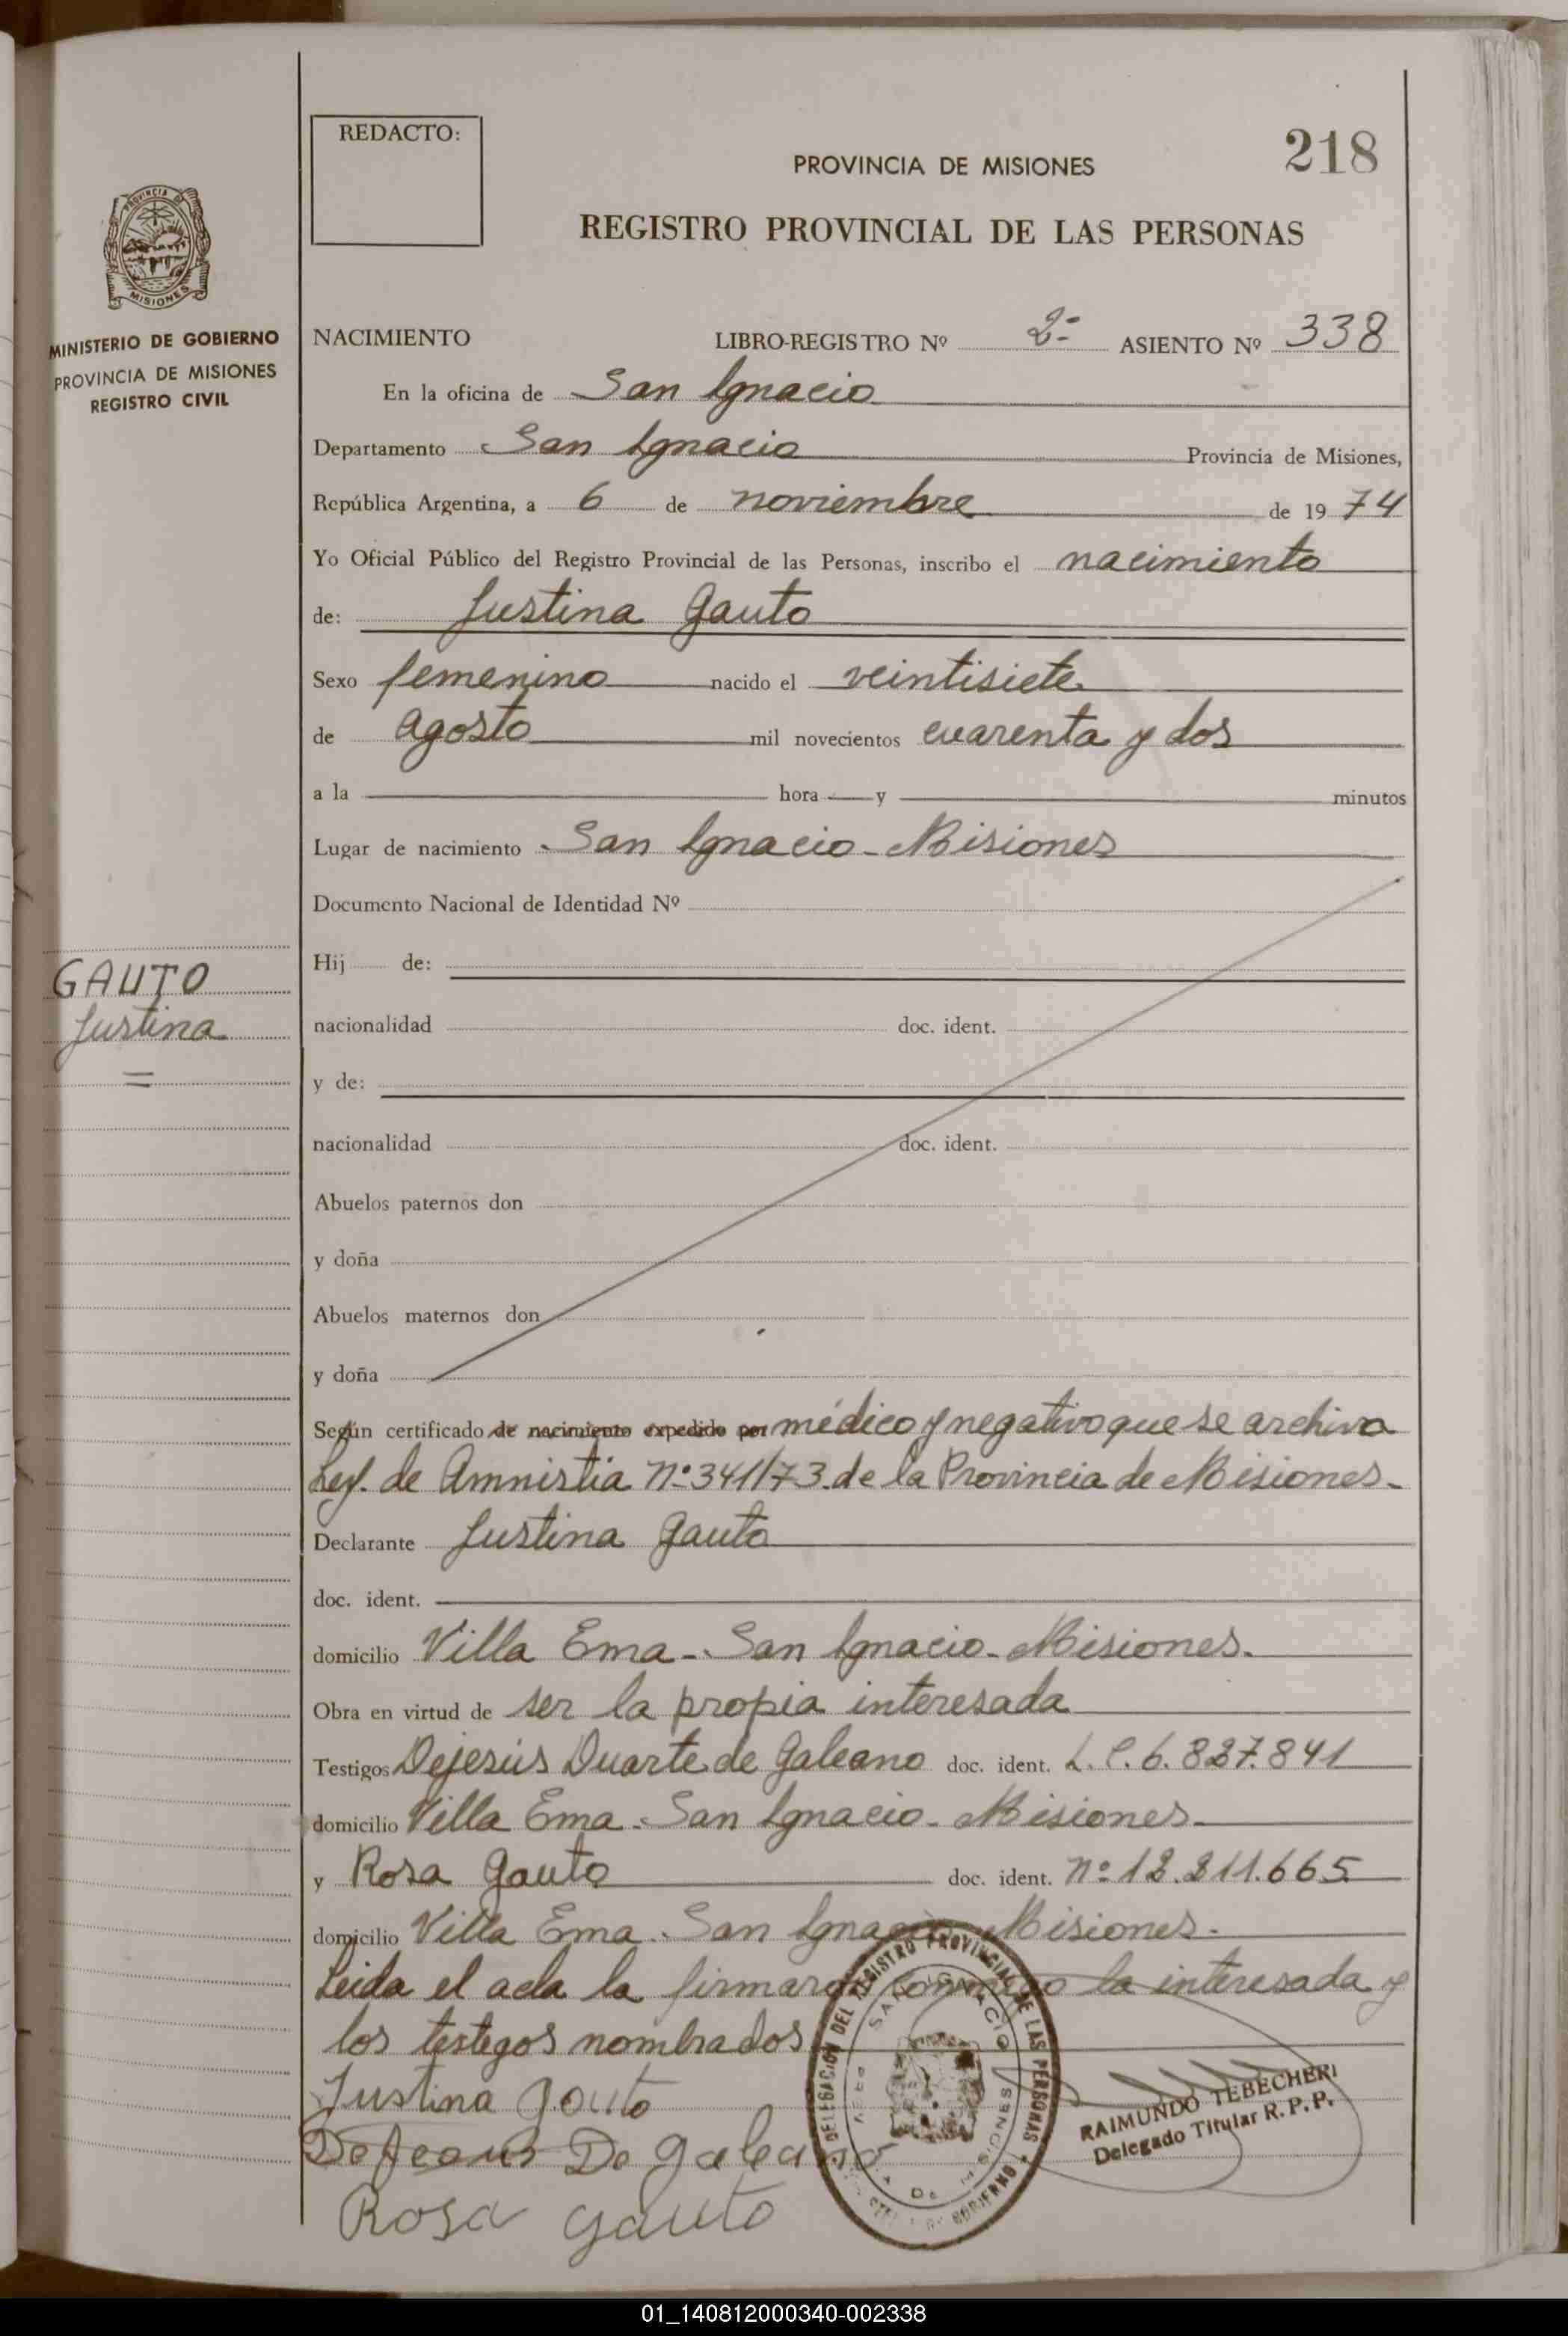 REDACTO:
218
PROVINCIA DE MISIONES
REGISTRO PROVINCIAL DE LAS PERSONAS
PROVINCIA DE
MISIONES
MINISTERIO DE GOBIERNO
PROVINCIA DE MISIONES
REGISTRO CIVIL
NACIMIENTO LIBRO-REGISTRO Nº 2- ASIENTO Nº 338
En la oficina de San Ignacio
Departamento San Ignacio Provincia de Misiones,
República Argentina, a 6 de noviembre de 1974
Yo Oficial Público del Registro Provincial de las Personas, inscribo el nacimiento
de: Justina Gauto
Sexo femenino nacido el veintisiete
de agosto mil novecientos cuarenta y dos
a la hora y minutos
Lugar de nacimiento San Ignacio - Misiones
Documento Nacional de Identidad Nº
Hij de:
GAUTO
Justina
=
nacionalidad doc. ident.
y de:
nacionalidad doc. ident.
Abuelos paternos don
y doña
Abuelos maternos don
y doña
Según certificado de nacimiento expedido por médico y negativo que se archiva
Ley. de Amnistia Nº 341/73 de la Provincia de Misiones.
Declarante Justina Gauto
doc. ident.
domicilio Villa Ema - San Ignacio - Misiones.
Obra en virtud de ser la propia interesada
Testigos Dejesús Duarte de Galeano doc. ident. L.C. 6.827.841
domicilio Villa Ema - San Ignacio - Misiones
y Rosa Gauto doc. ident. Nº 12.211.665
domicilio Villa Ema - San Ignacio - Misiones.
Leida el acta la firmaron conmigo la interesada y
los testigos nombrados
Justina Gauto
De Galeano
Rosa Gauto
DELEGACION DEL REGISTRO PROVINCIAL DE LAS PERSONAS
SAN IGNACIO
MISIONES
RAIMUNDO TEBECHERI
Delegado Titular R.P.P.
01_140812000340-002338